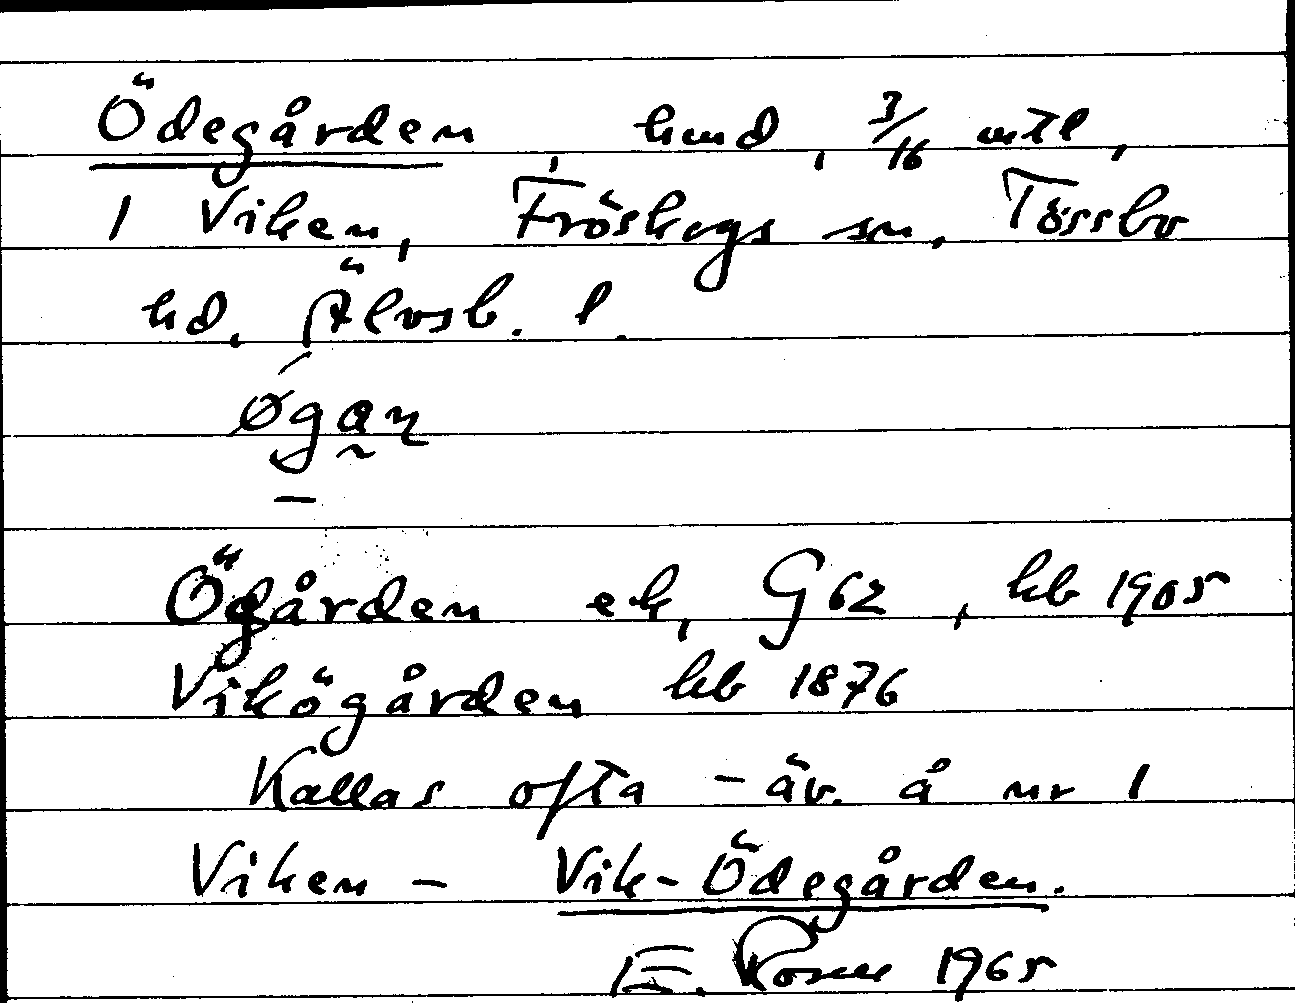 Ödegården, hmd, 3/16 mtl,
1 Viken, Fröskogs sn, Tössbo
hd. Älvsb. l.
Ögården ek, G 62, kb 1905
Vikögården kb 1876
Kallas ofta - äv. å nr 1
Viken - Vik-Ödegården.
E. Rosell 1965